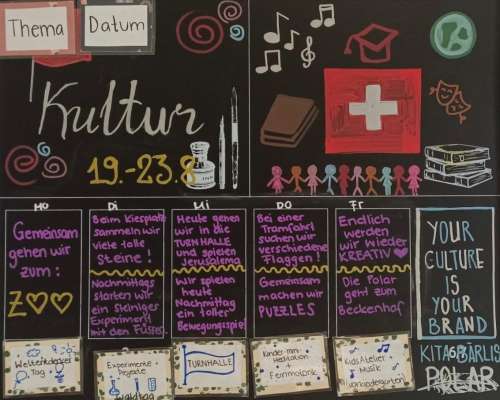 Thema
Datum
Kultur
19.-23.8
MO
DI
MI
DO
FR
Gemeinsam
gehen wir
zum:
ZOO
Beim Kiesplatz
sammeln wir
viele tolle
Steine!
Nachmittags
starten wir
ein steiniges
Experiment
mit den Füssen.
Heute gehen
wir in die
TURNHALLE
und spielen
Jerusalema
Wir spielen
heute
Nachmittag
ein toller
Bewegungsspiel
Bei einer
Tramfahrt
suchen wir
verschiedene
Flaggen!
Gemeinsam
machen wir
PUZZLES
Endlich
werden
wir wieder
KREATIV
Die Polar
geht zum
Beckenhof
YOUR
CULTURE
IS
YOUR
BRAND
Weltentdecker
Tag
Experimente +
Projekte
Waldtag
TURNHALLE
Kinder-mini
Meditation
+
Feinmotorik
KidsAtelier
Musik
KITA BÄRLI
POLAR